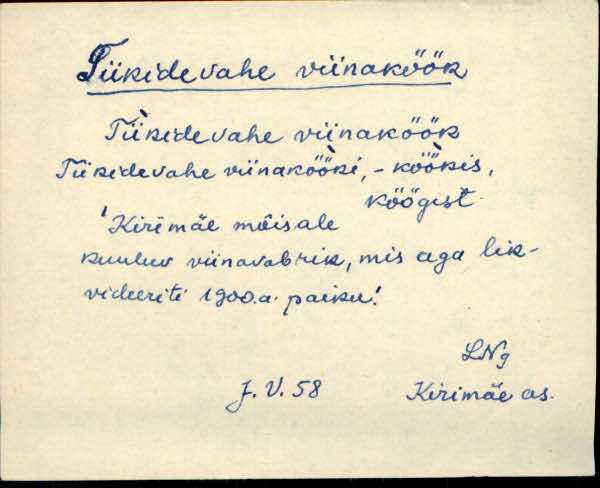 Tiikidevahe viinaköök
Tìikidevahe viinaköök
Tiikidevahe viinaköö̀ki, - köö̀kis,
köögist
'Kirimäe mõisale
kuuluv viinavabrik, mis aga lik-
videeriti 1900.a. paiku!
LNg
J. V. 58
Kirimäe as.